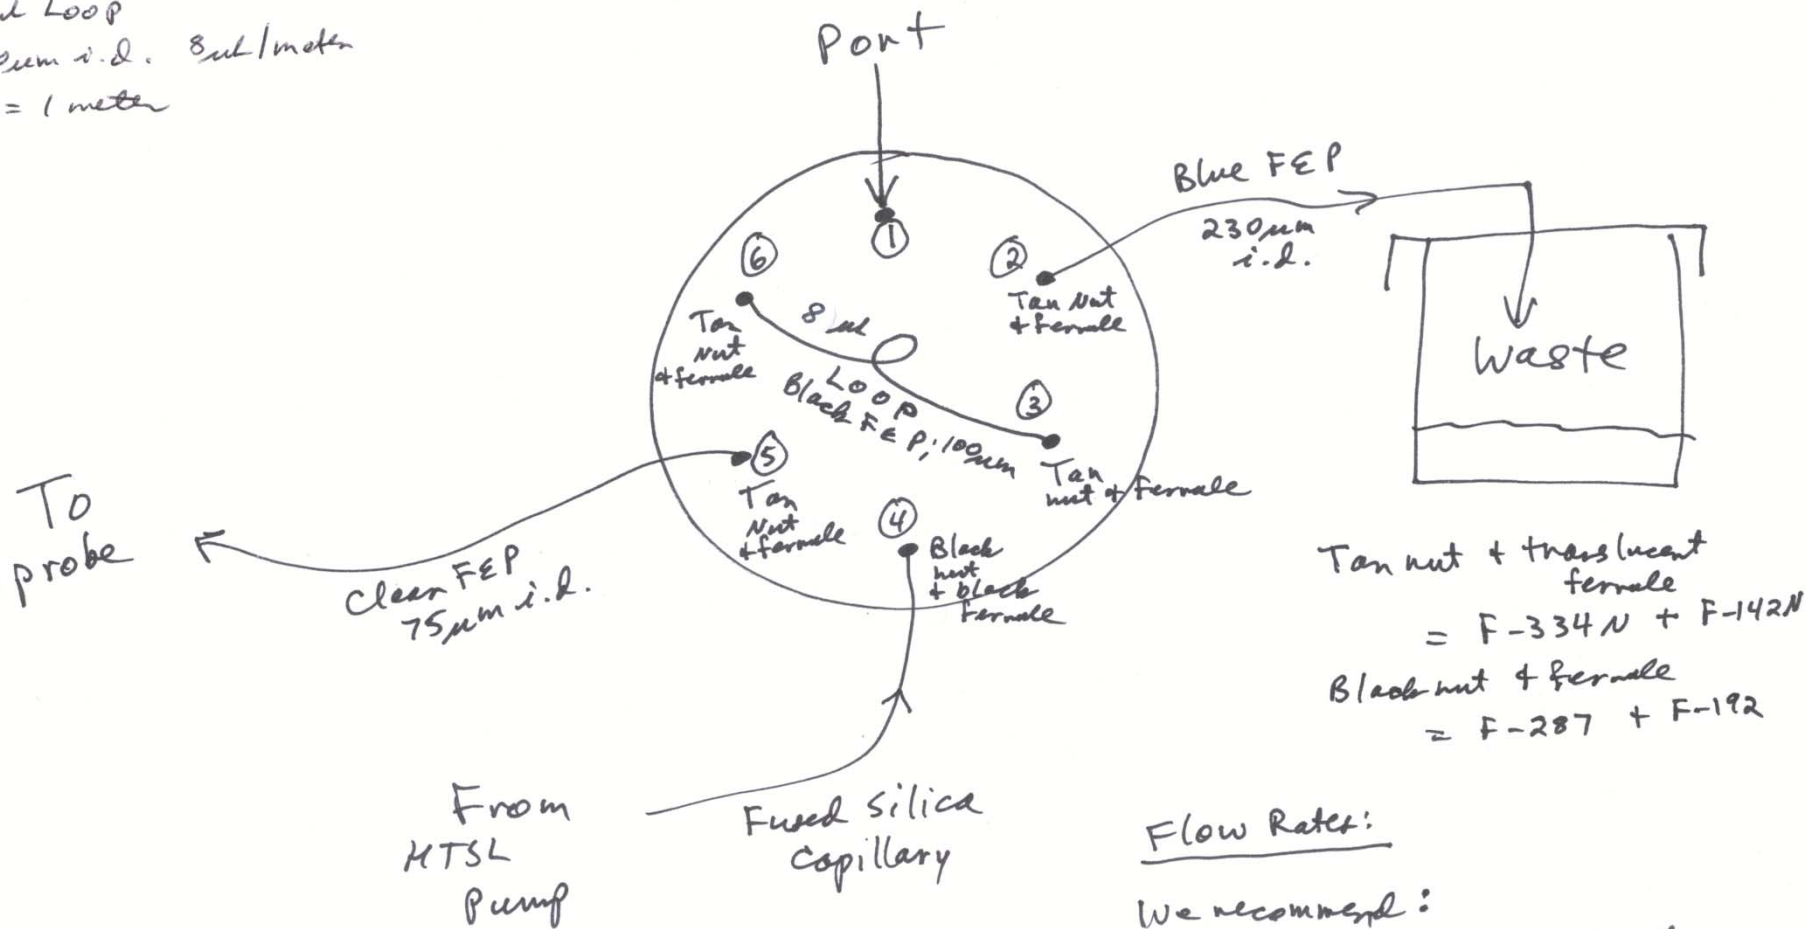 Loop
i.d. 8uL/meter
= 1 meter
Port
Blue FEP
230µm
i.d.
①
②
Tan Nut
+ ferrule
⑥
Tan
Nut
+ ferrule
8 uL
Loop
Black FEP; 100um
③
Tan
nut + ferrule
Waste
⑤
Tan
Nut
+ ferrule
④
Black
nut
+ black
ferrule
To
probe
Clear FEP
75µm i.d.
Tan nut + translucent
ferrule
= F-334N + F-142N
Black nut + ferrule
= F-287 + F-192
From
Pump
Fused silica
Capillary
Flow Rates:
We recommend: